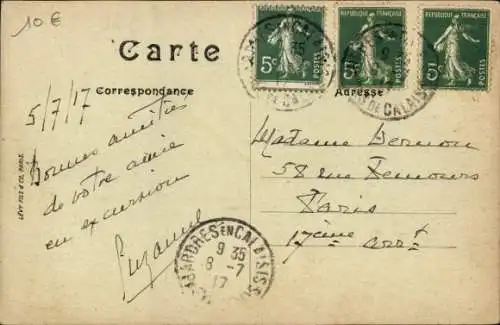 10 €
Carte
Correspondance
Adresse
REPUBLIQUE FRANÇAISE
5c POSTES
REPUBLIQUE FRANÇAISE
5c POSTES
REPUBLIQUE FRANÇAISE
5c POSTES
5/7/17
Bonnes amitiés
de votre amie
en excursion
Suzanne
Madame
58 rue
Paris
17ème arrt
ARDRES EN CALAISIS
9 35
8 -7
17
PAS DE CALAIS